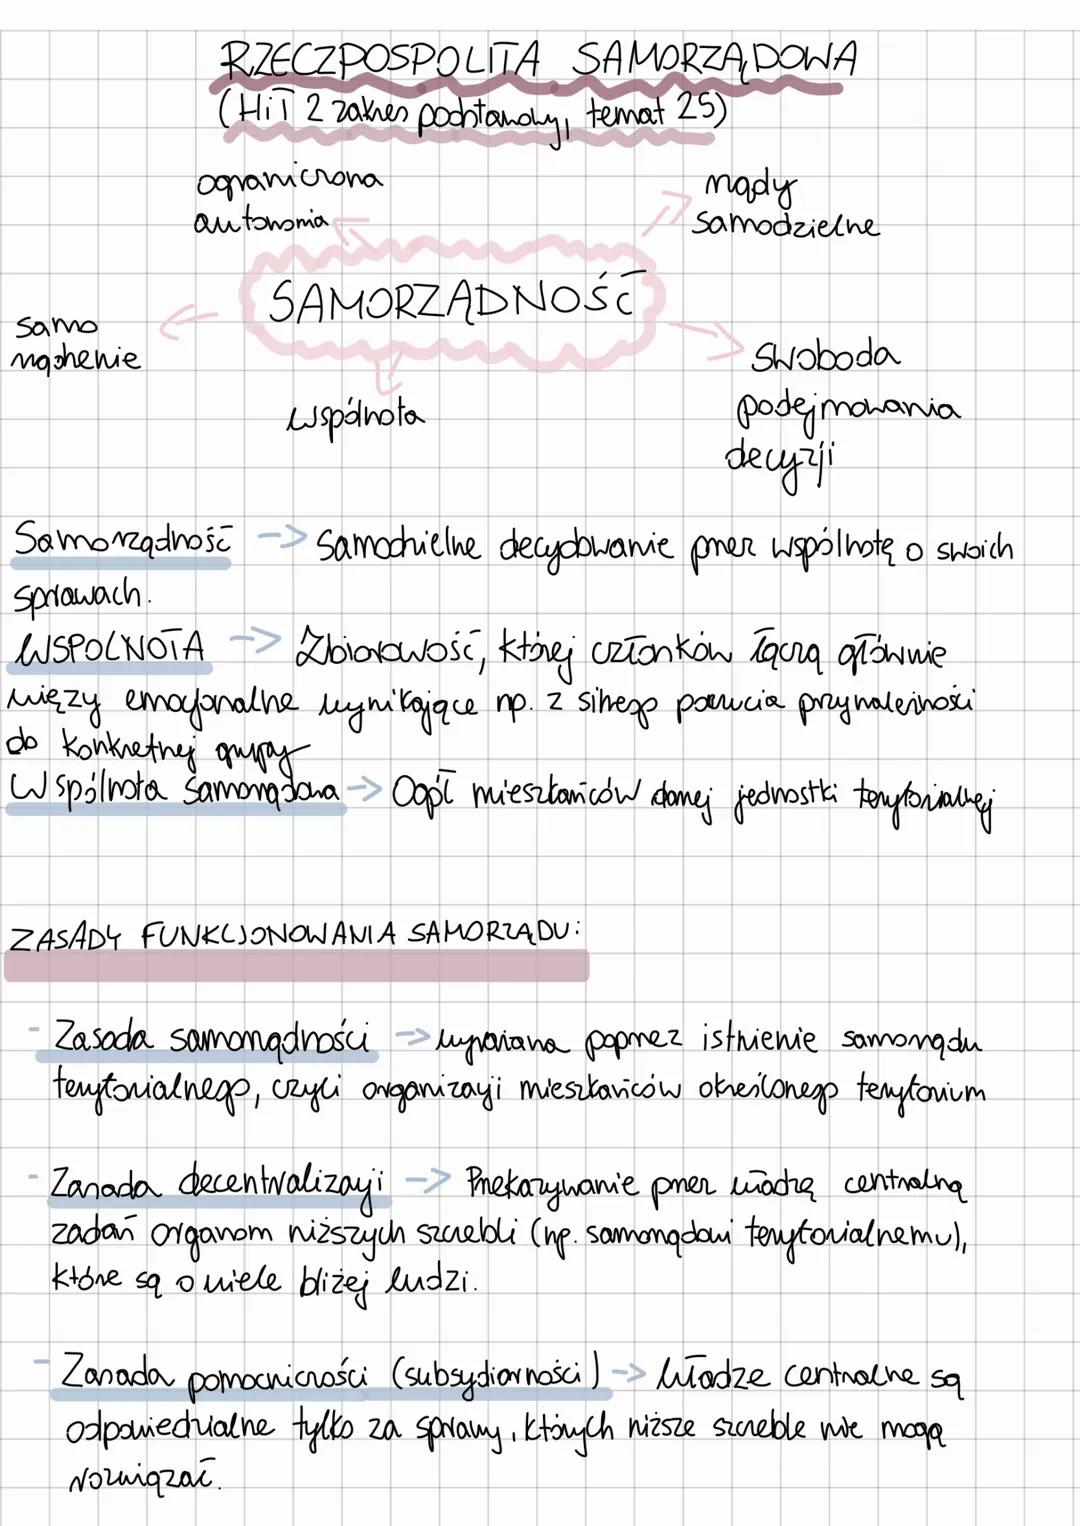 RZECZPOSPOLITA SAMORZĄDOWA
(HiT 2 zakres podstawowy, temat 25)
ograniczona
autonomia
rządy
samodzielne
SAMORZĄDNOŚĆ
samo
rządzenie
wspólnota
swoboda
podejmowania
decyzji
Samorządność -> Samodzielne decydowanie przez wspólnotę o swoich
sprawach.
WSPOLNOTA -> Zbiorowość, której członków łączą głównie
więzy emocjonalne wynikające np. z silnego poczucia przynależności
do konkretnej grupy
Wspólnota samorządowa -> Ogół mieszkańców danej jednostki terytorialnej
ZASADY FUNKCJONOWANIA SAMORZĄDU:
- Zasada samorządności -> wyrażana poprzez istnienie samorządu
terytorialnego, czyli organizacji mieszkańców określonego terytorium
- Zasada decentralizacji -> Przekazywanie przez władzę centralną
zadań organom niższych szczebli (np. samorządowi terytorialnemu),
które są o wiele bliżej ludzi.
- Zasada pomocniczości (subsydiarności) -> Władze centralne są
odpowiedzialne tylko za sprawy, których niższe szczeble nie mogą
rozwiązać.